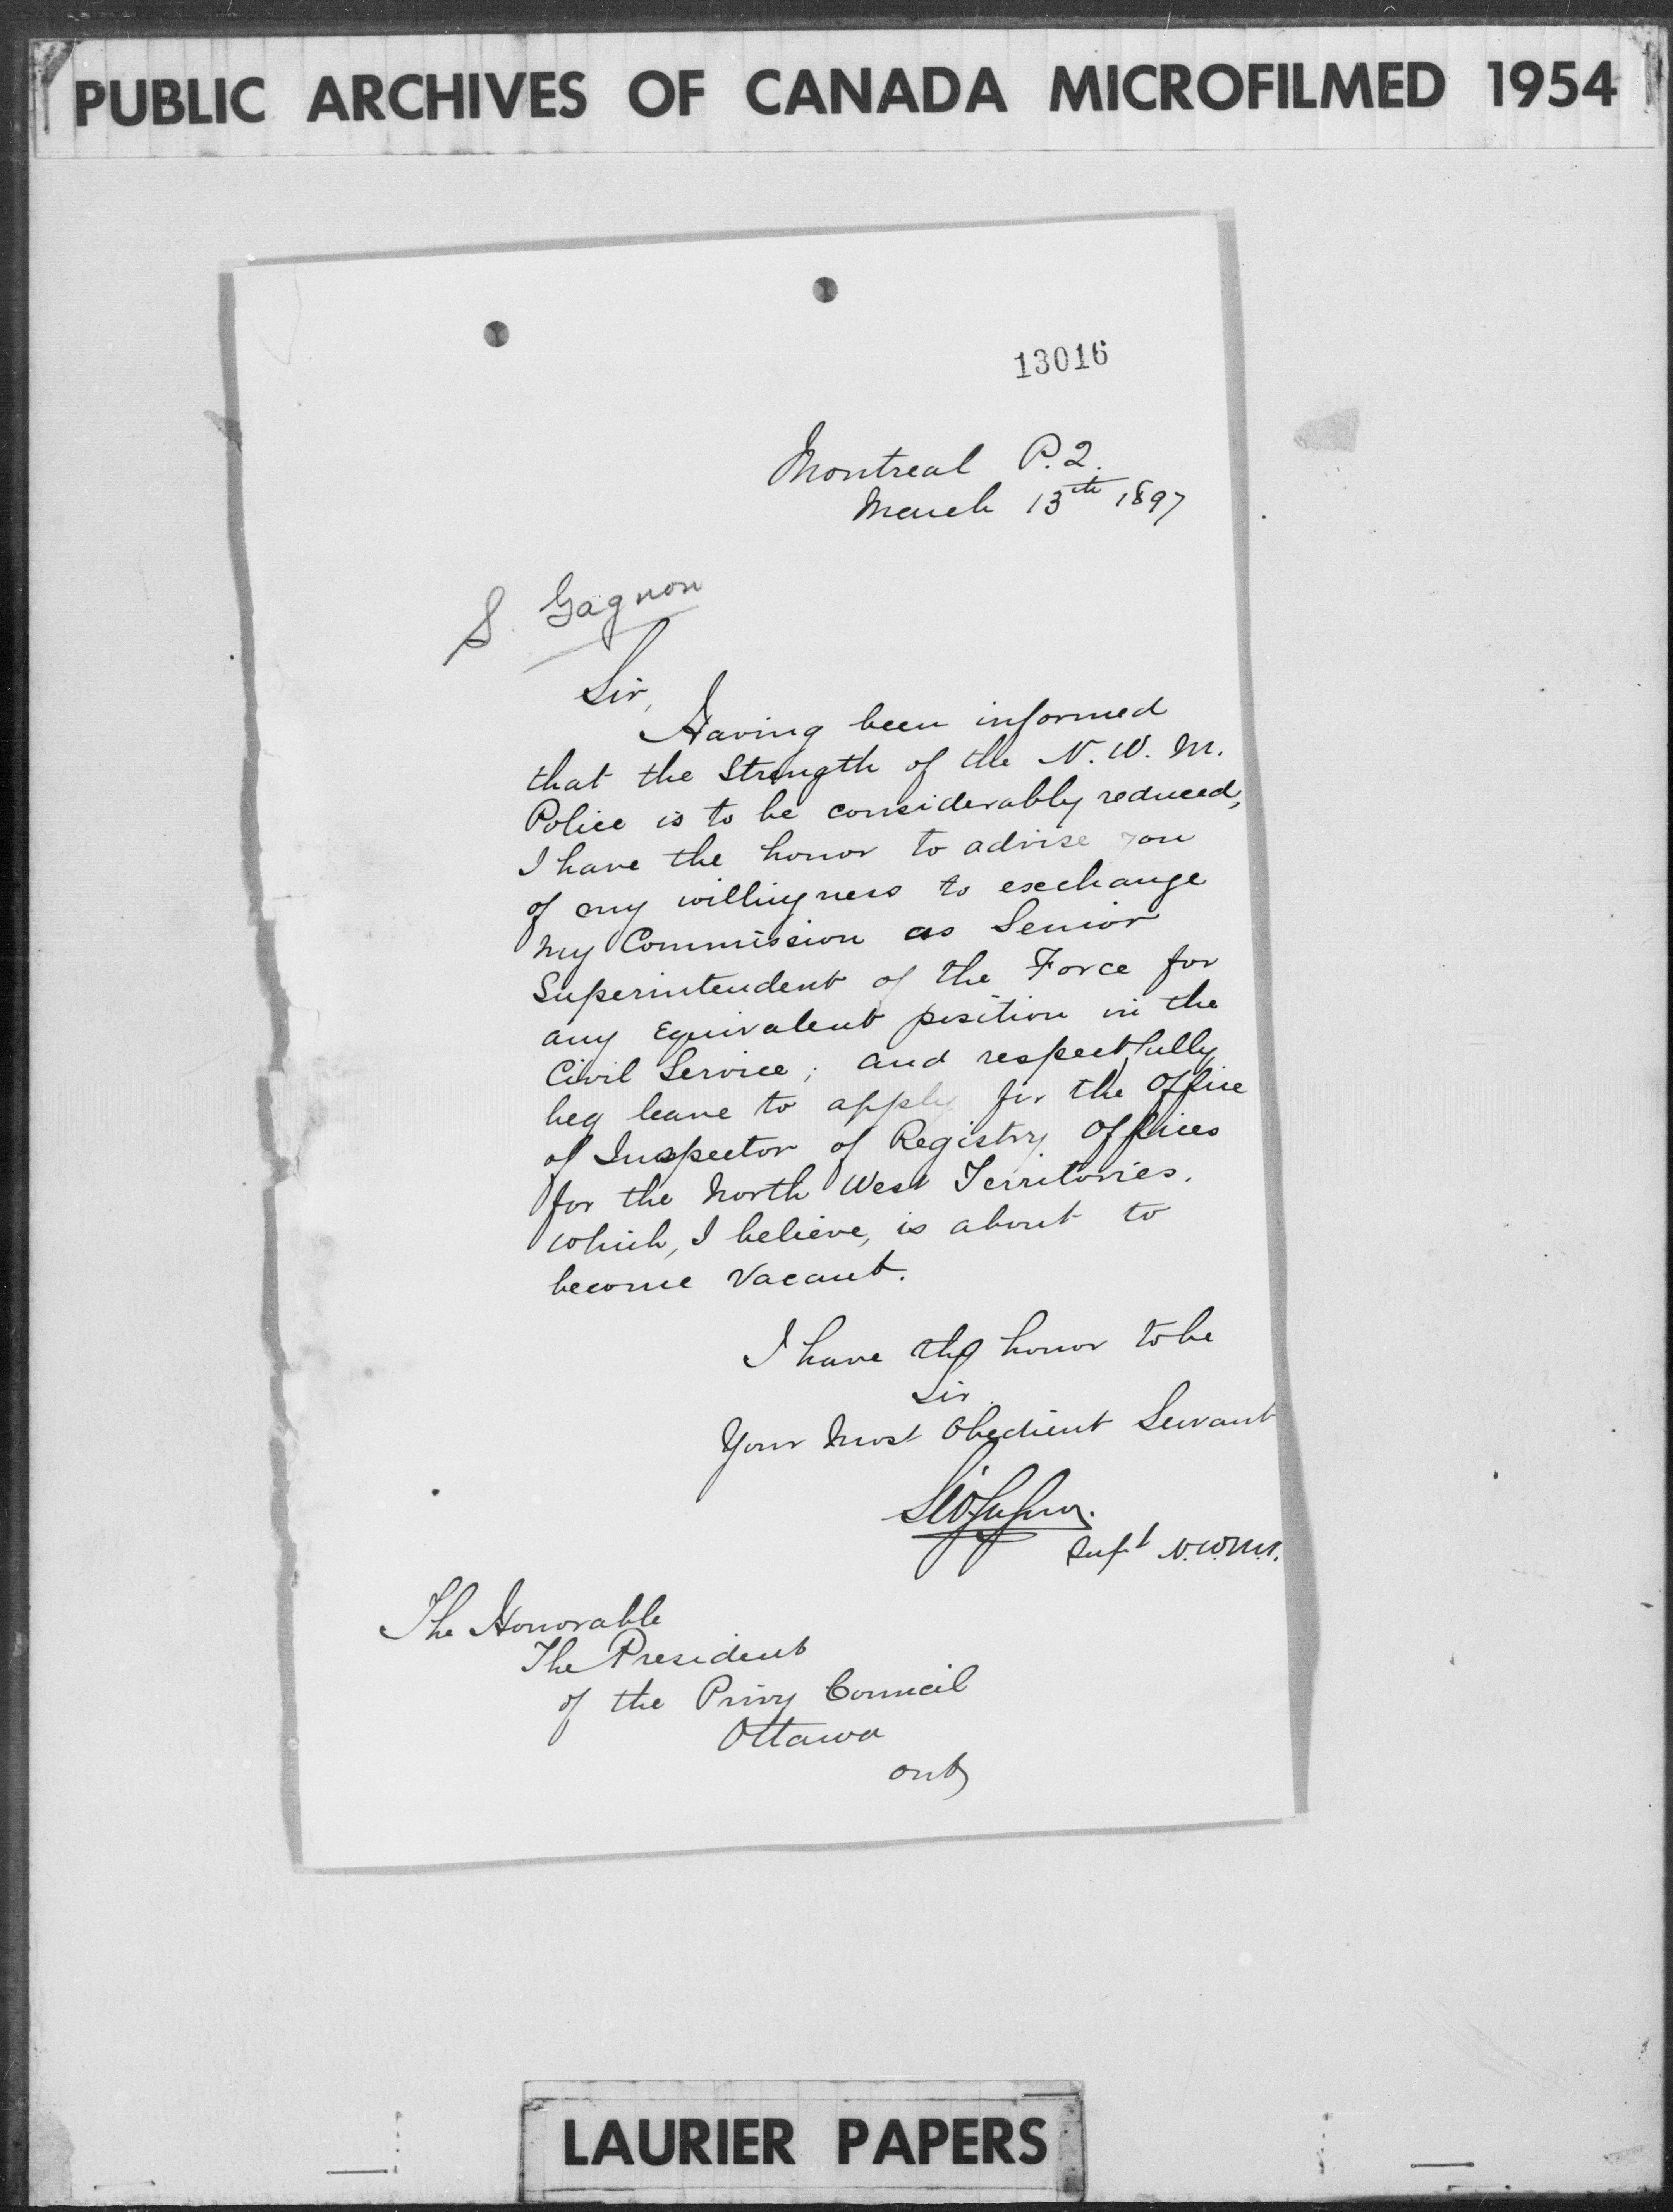 PUBLIC ARCHIVES OF CANADA MICROFILMED 1954
13016
Montreal P.Q.
March 13th 1897
S. Gagnon
Sir,
Having been informed
that the Strength of the N. W. M.
Police is to be considerably reduced,
I have the honor to advise you
of my willingness to exchange
my Commission as Senior
Superintendent of the Force for
any Equivalent position in the
Civil Service; and respectfully
beg leave to apply for the Office
of Inspector of Registry Offices
for the North West Territories.
which, I believe, is about to
become Vacant.
I have the honor to be
Sir.
Your Most Obedient Servant
Supt N.W.M.P.
The Honorable
The President
of the Privy Council
Ottawa
Ont
LAURIER PAPERS